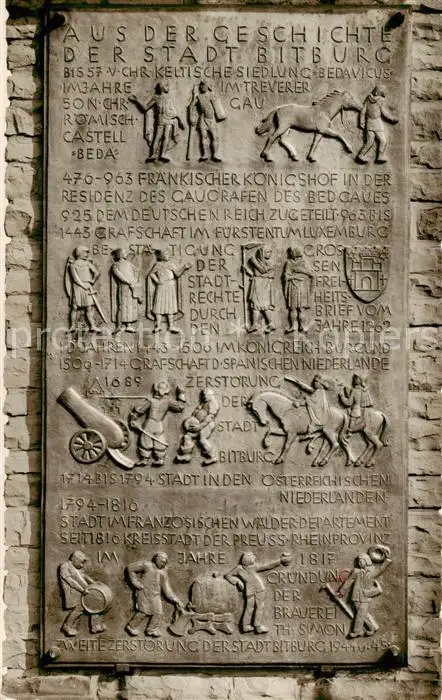 AUS DER GESCHICHTE
DER STADT BITBURG
BIS 57·V·CHR·KELTISCHE SIEDLUNG·BEDAVICUS·
IM JAHRE IM TREVERER
50 N·CHR GAU
RÖMISCH·
CASTELL
·BEDA·
476-963 FRÄNKISCHER KÖNIGSHOF IN DER
RESIDENZ DES GAUGRAFEN DES BEDGAUES
925 DEM DEUTSCHEN REICH ZUGETEILT·963 BIS
1443 GRAFSCHAFT IM FÜRSTENTUM LUXEMBURG
BESTÄTIGUNG GROS
DER SEN
STADT FREI
RECHTE HEITS
DURCH BRIEF VOM
DEN JAHRE 1262
JAHREN 1443-1506 IM KÖNIGREICH BURGUND
1506-1714 GRAFSCHAFT D·SPANISCHEN NIEDERLANDE
1689 ZERSTÖRUNG
DER
STADT
BITBURG
1714 BIS 1794 STADT IN DEN ÖSTERREICHISCHEN
NIEDERLANDEN
1794-1816
STADT IM FRANZÖSISCHEN WÄLDER-DEPARTEMENT
SEIT 1816 KREISSTADT DER PREUSS·RHEINPROVINZ
IM JAHRE 1817
GRÜNDUNG
DER
BRAUEREI
TH·SIMON
ZWEITE ZERSTÖRUNG DER STADT BITBURG 1944 G·45
protected